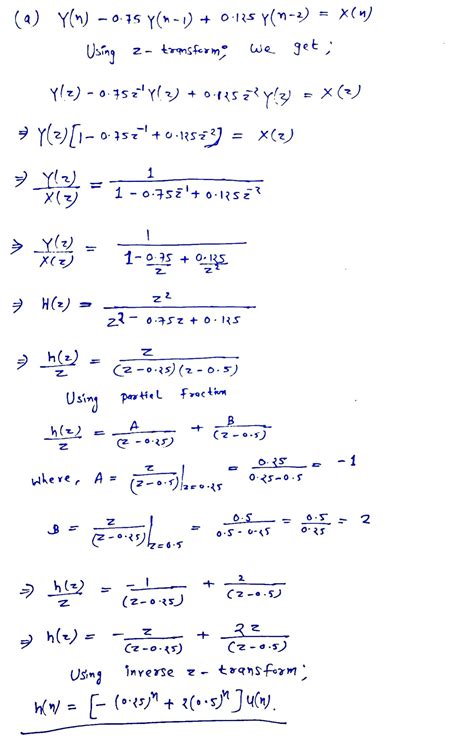 (a) Y(n) - 0.75 Y(n-1) + 0.125 Y(n-2) = X(n)
Using z-transform; we get;
Y(z) - 0.75z⁻¹Y(z) + 0.125z⁻²Y(z) = X(z)
⇒ Y(z)[1 - 0.75z⁻¹ + 0.125z⁻²] = X(z)
⇒ Y(z)/X(z) = 1/(1 - 0.75z⁻¹ + 0.125z⁻²)
⇒ Y(z)/X(z) = 1/(1 - 0.75/z + 0.125/z²)
⇒ H(z) = z²/(z² - 0.75z + 0.125)
⇒ h(z)/z = z/((z-0.25)(z-0.5))
Using partial fraction
h(z)/z = A/(z-0.25) + B/(z-0.5)
where, A = z/(z-0.5)|z=0.25 = 0.25/(0.25-0.5) = -1
B = z/(z-0.25)|z=0.5 = 0.5/(0.5-0.25) = 0.5/0.25 = 2
⇒ h(z)/z = -1/(z-0.25) + 2/(z-0.5)
⇒ h(z) = -z/(z-0.25) + 2z/(z-0.5)
Using inverse z-transform;
h(n) = [-(0.25)ⁿ + 2(0.5)ⁿ]u(n).